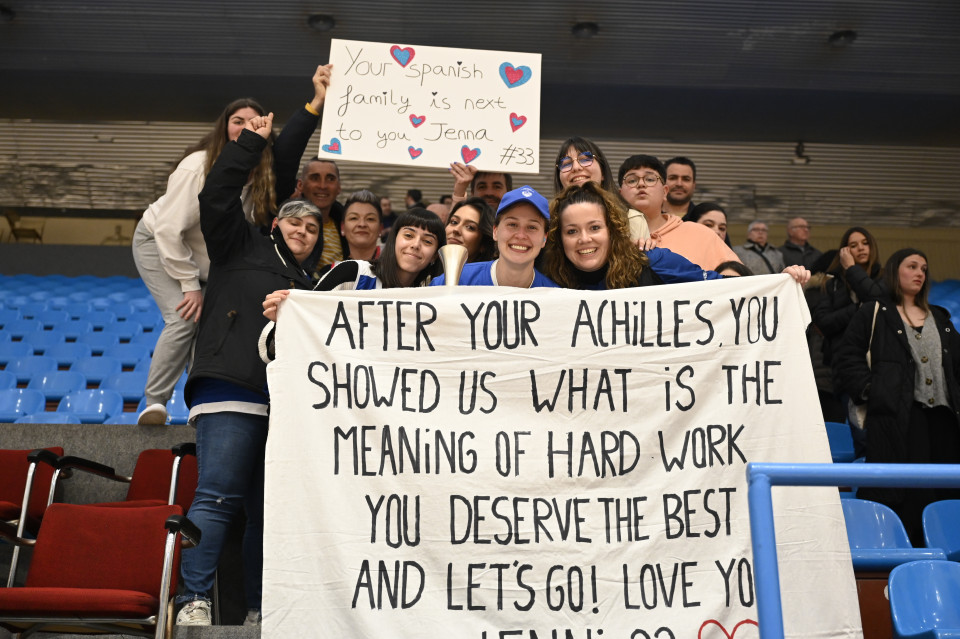 Your spanish
family is next
to you Jenna
#33
AFTER YOUR ACHiLLES, YOU
SHOWED US WHAT IS THE
MEANiNG OF HARD WORK
YOU DESERVE THE BEST
AND LET'S GO! LOVE YO